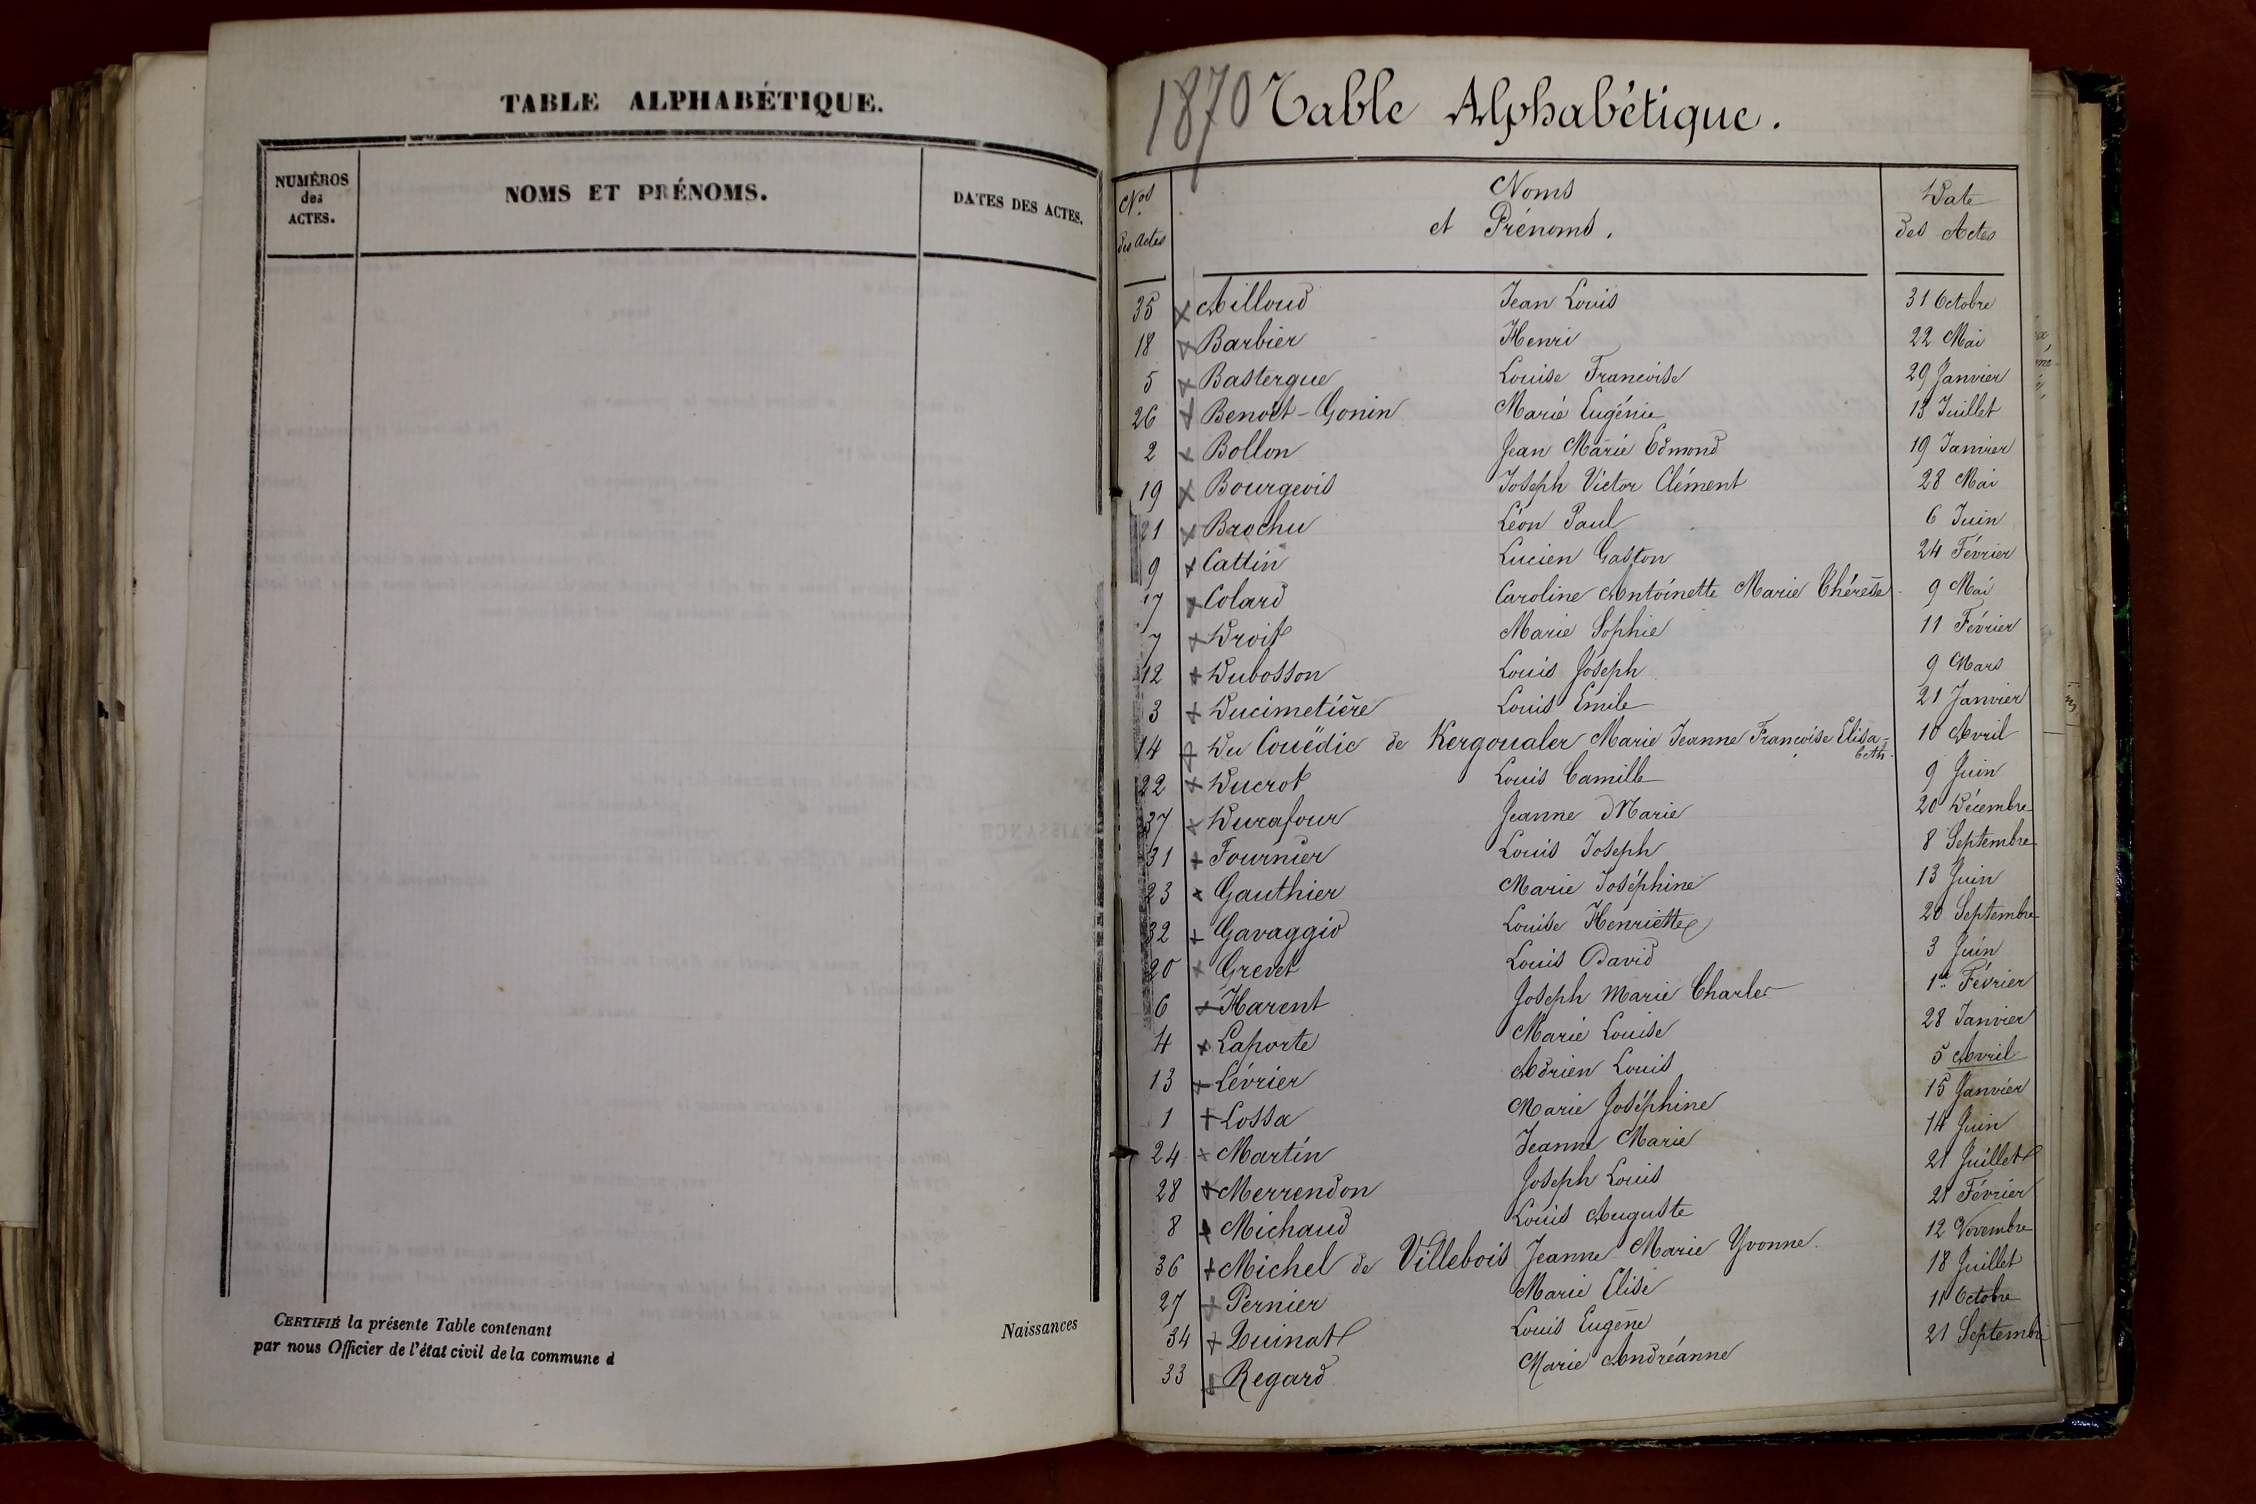 TABLE ALPHABÉTIQUE.
NUMÉROS
des
ACTES.
NOMS ET PRÉNOMS.
DATES DES ACTES.
CERTIFIÉ la présente Table contenant
Naissances
par nous Officier de l'état civil de la commune d
1870 Table Alphabétique.
Nos
des Actes
Noms
et Prénoms.
Date
des Actes
35 Ailloud Jean Louis 31 Octobre
18 Barbier Henri 22 Mai
5 Bastergue Louise Francoise 29 Janvier
26 Benoit-Gonin Marie Eugénie 13 Juillet
2 Bollon Jean Marie Edmond 19 Janvier
19 Bourgeois Joseph Victor Clément 28 Mai
21 Brochu Léon Paul 6 Juin
9 Cattin Lucien Gaston 24 Février
17 Colard Caroline Antoinette Marie Thérèse 9 Mai
7 Droit Marie Sophie 11 Février
12 Dubosson Louis Joseph 9 Mars
3 Ducimetière Louis Emile 21 Janvier
14 Du Couëdic de Kergoualer Marie Jeanne Françoise Elisa-beth 10 Avril
22 Ducrot Louis Camille 9 Juin
37 Durafour Jeanne Marie 20 Décembre
31 Fournier Louis Joseph 8 Septembre
23 Gauthier Marie Joséphine 13 Juin
32 Gavaggio Louise Henriette 20 Septembre
20 Grevet Louis David 3 Juin
6 Harent Joseph Marie Charles 1er Février
4 Laporte Marie Louise 28 Janvier
13 Lévrier Adrien Louis 5 Avril
1 Lossa Marie Joséphine 15 Janvier
24 Martin Jeanne Marie 14 Juin
28 Merrendon Joseph Louis 21 Juillet
8 Michaud Louis Auguste 21 Février
36 Michel de Villebois Jeanne Marie Yvonne 12 Novembre
27 Pernier Marie Elise 18 Juillet
34 Quinat Louis Eugène 11 Octobre
33 Regard Marie Andréanne 21 Septembre